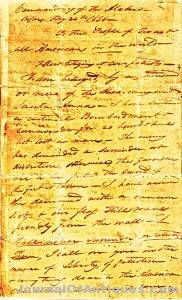 Commandancy of the Alamo
Bejar, Fby. 24th 1836
To the People of Texas &
all Americans in the world
Fellow citizens & compatriots
I am besieged by a
or more of the Mexicans under
Santa Anna I have
a continual Bombardment &
cannonade for 24 hours &
not lost a man The enemy
has demanded a surrender at
discretion, otherwise, the garrison
are to be put to the sword
I have answered
the demand with a cannon
shot, & our flag still waves
proudly from the wall
I shall never surrender
Then, I call on you in the
name of Liberty, of patriotism
dear to the American
JournalOfAntiques.com